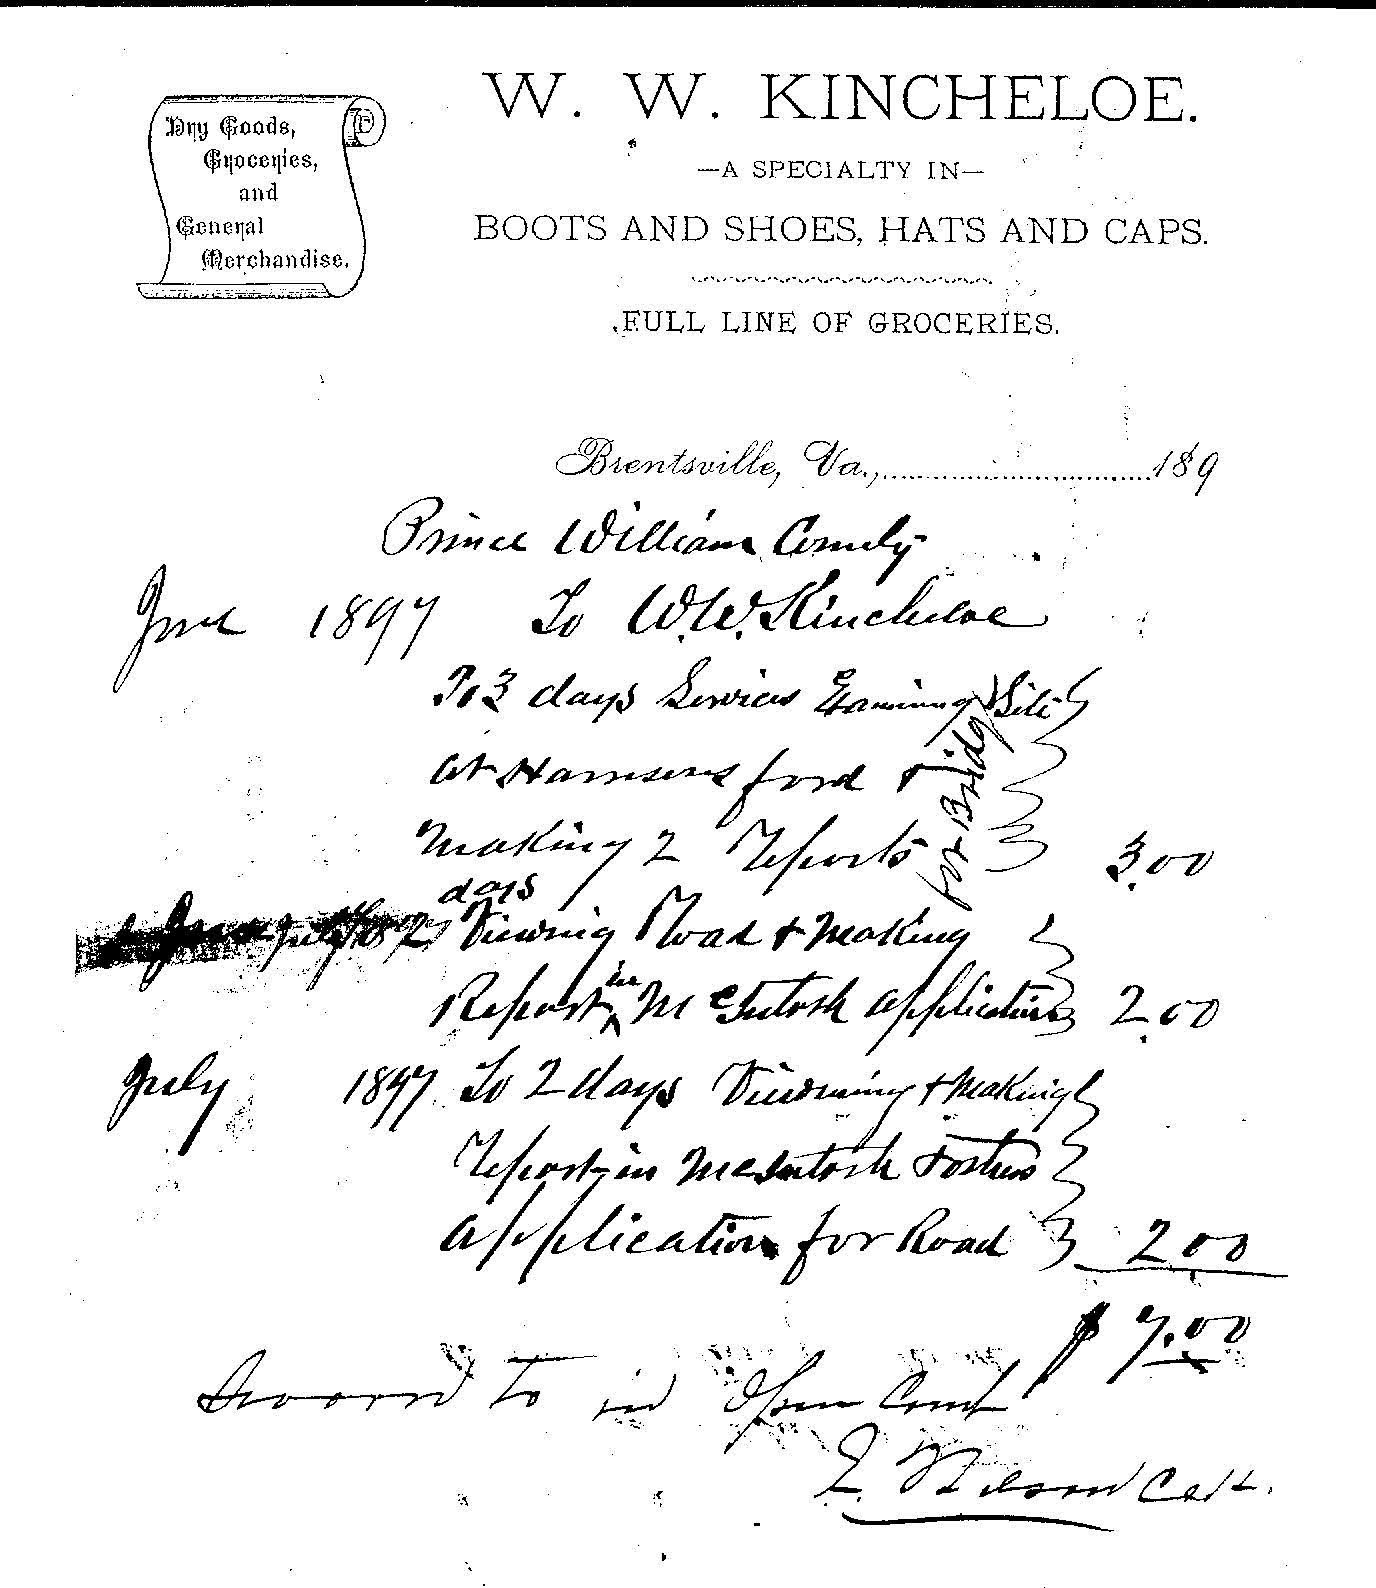 Dry Goods,
Groceries,
and
General
Merchandise.
W. W. KINCHELOE.
—A SPECIALTY IN—
BOOTS AND SHOES, HATS AND CAPS.
FULL LINE OF GROCERIES.
Brentsville, Va., 189
Prince William County
June 1897 To W.W. Kincheloe
To 3 days Services Examining Site
for Bridg
at Harrisons ford +
making 2 reports 3.00
days
July 1897 Viewing Road + Making
Report in McIntosh application 2.00
July 1897 To 2 days Viewing + Making
report in McIntosh + others
application for Road 2 00
$ 7.00
Sworn to in Open Court
E. Nelson Clk.